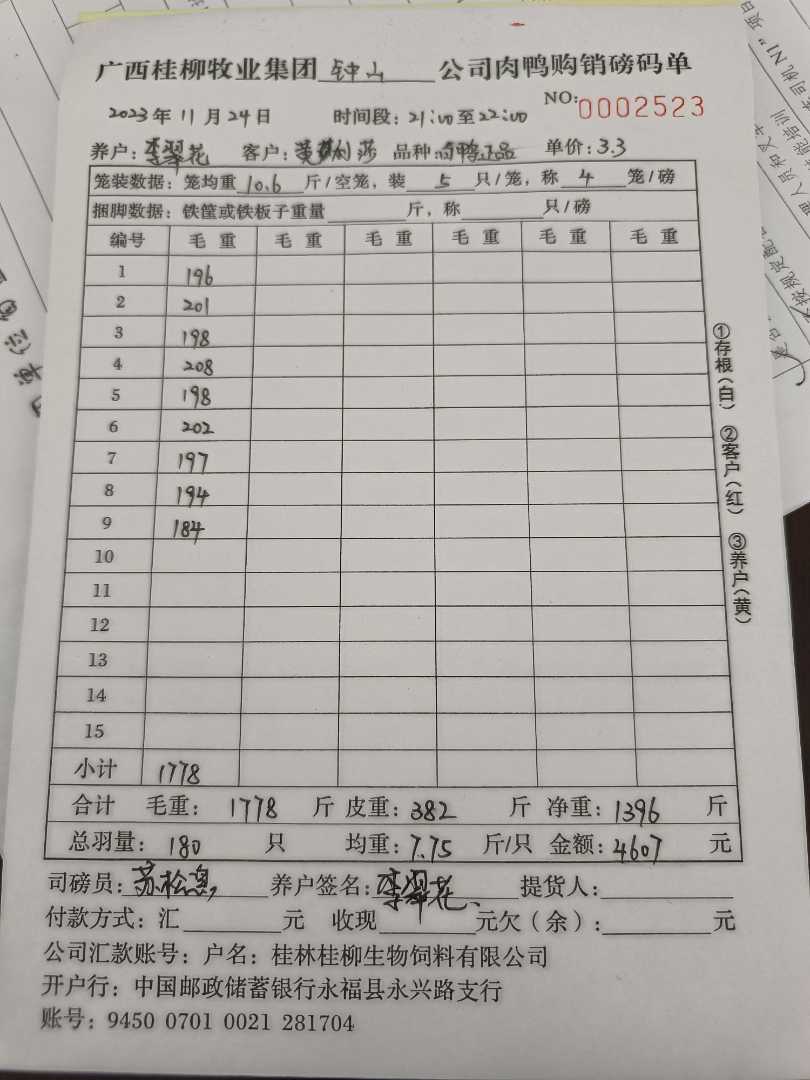 广西桂柳牧业集团 钟山 公司肉鸭购销磅码单
2023年 11月 24日 时间段: 21:00至22:00 NO: 0002523
养户: 李翠花 客户: 黄 莎 品种: 肉鸭正品 单价: 3.3
笼装数据: 笼均重 10.6 斤/空笼, 装 5 只/笼, 称 4 笼/磅
捆脚数据: 铁筐或铁板子重量 斤, 称 只/磅
编号 毛重 毛重 毛重 毛重 毛重 毛重
1 196
2 201
3 198
4 208
5 198
6 202
7 197
8 194
9 184
10
11
12
13
14
15
小计 1778
合计 毛重: 1778 斤 皮重: 382 斤 净重: 1396 斤
总羽量: 180 只 均重: 7.75 斤/只 金额: 4607 元
司磅员: 苏松 养户签名: 李翠花 提货人:
付款方式: 汇 元 收现 元欠(余): 元
公司汇款账号: 户名: 桂林桂柳生物饲料有限公司
开户行: 中国邮政储蓄银行永福县永兴路支行
账号: 9450 0701 0021 281704
①存根(白) ②客户(红) ③养户(黄)